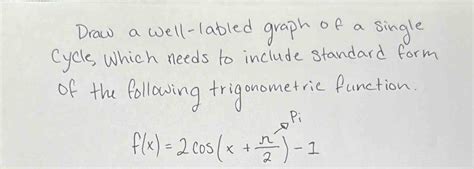 Draw a well-labled graph of a single
Cycle, which needs to include standard form
of the following trigonometric function.
Pi
f(x) = 2 cos(x + π/2) - 1